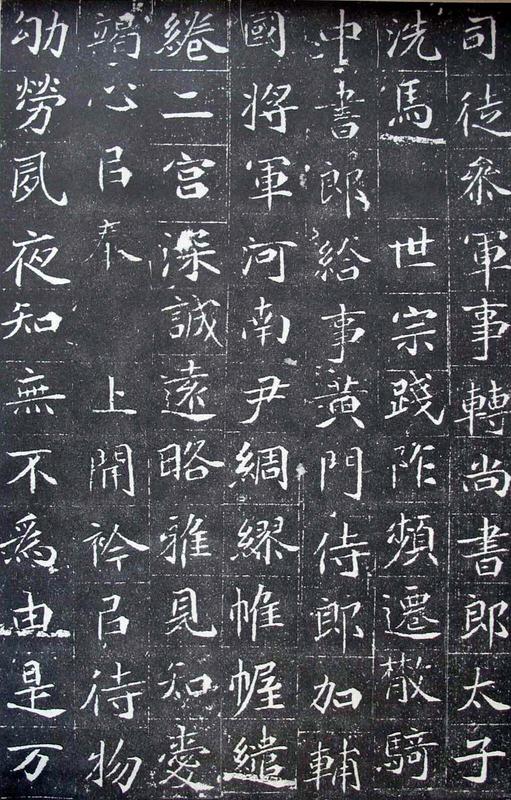 司徒參軍事轉尚書郎太子
洗馬 世宗踐阼頻遷散騎
中書郎給事黃門侍郎加輔
國將軍河南尹綢繆帷幄繾
綣二宮深誠遠略雅見知愛
竭心㠯奉 上開衿㠯待物
劬勞夙夜知無不為由是万